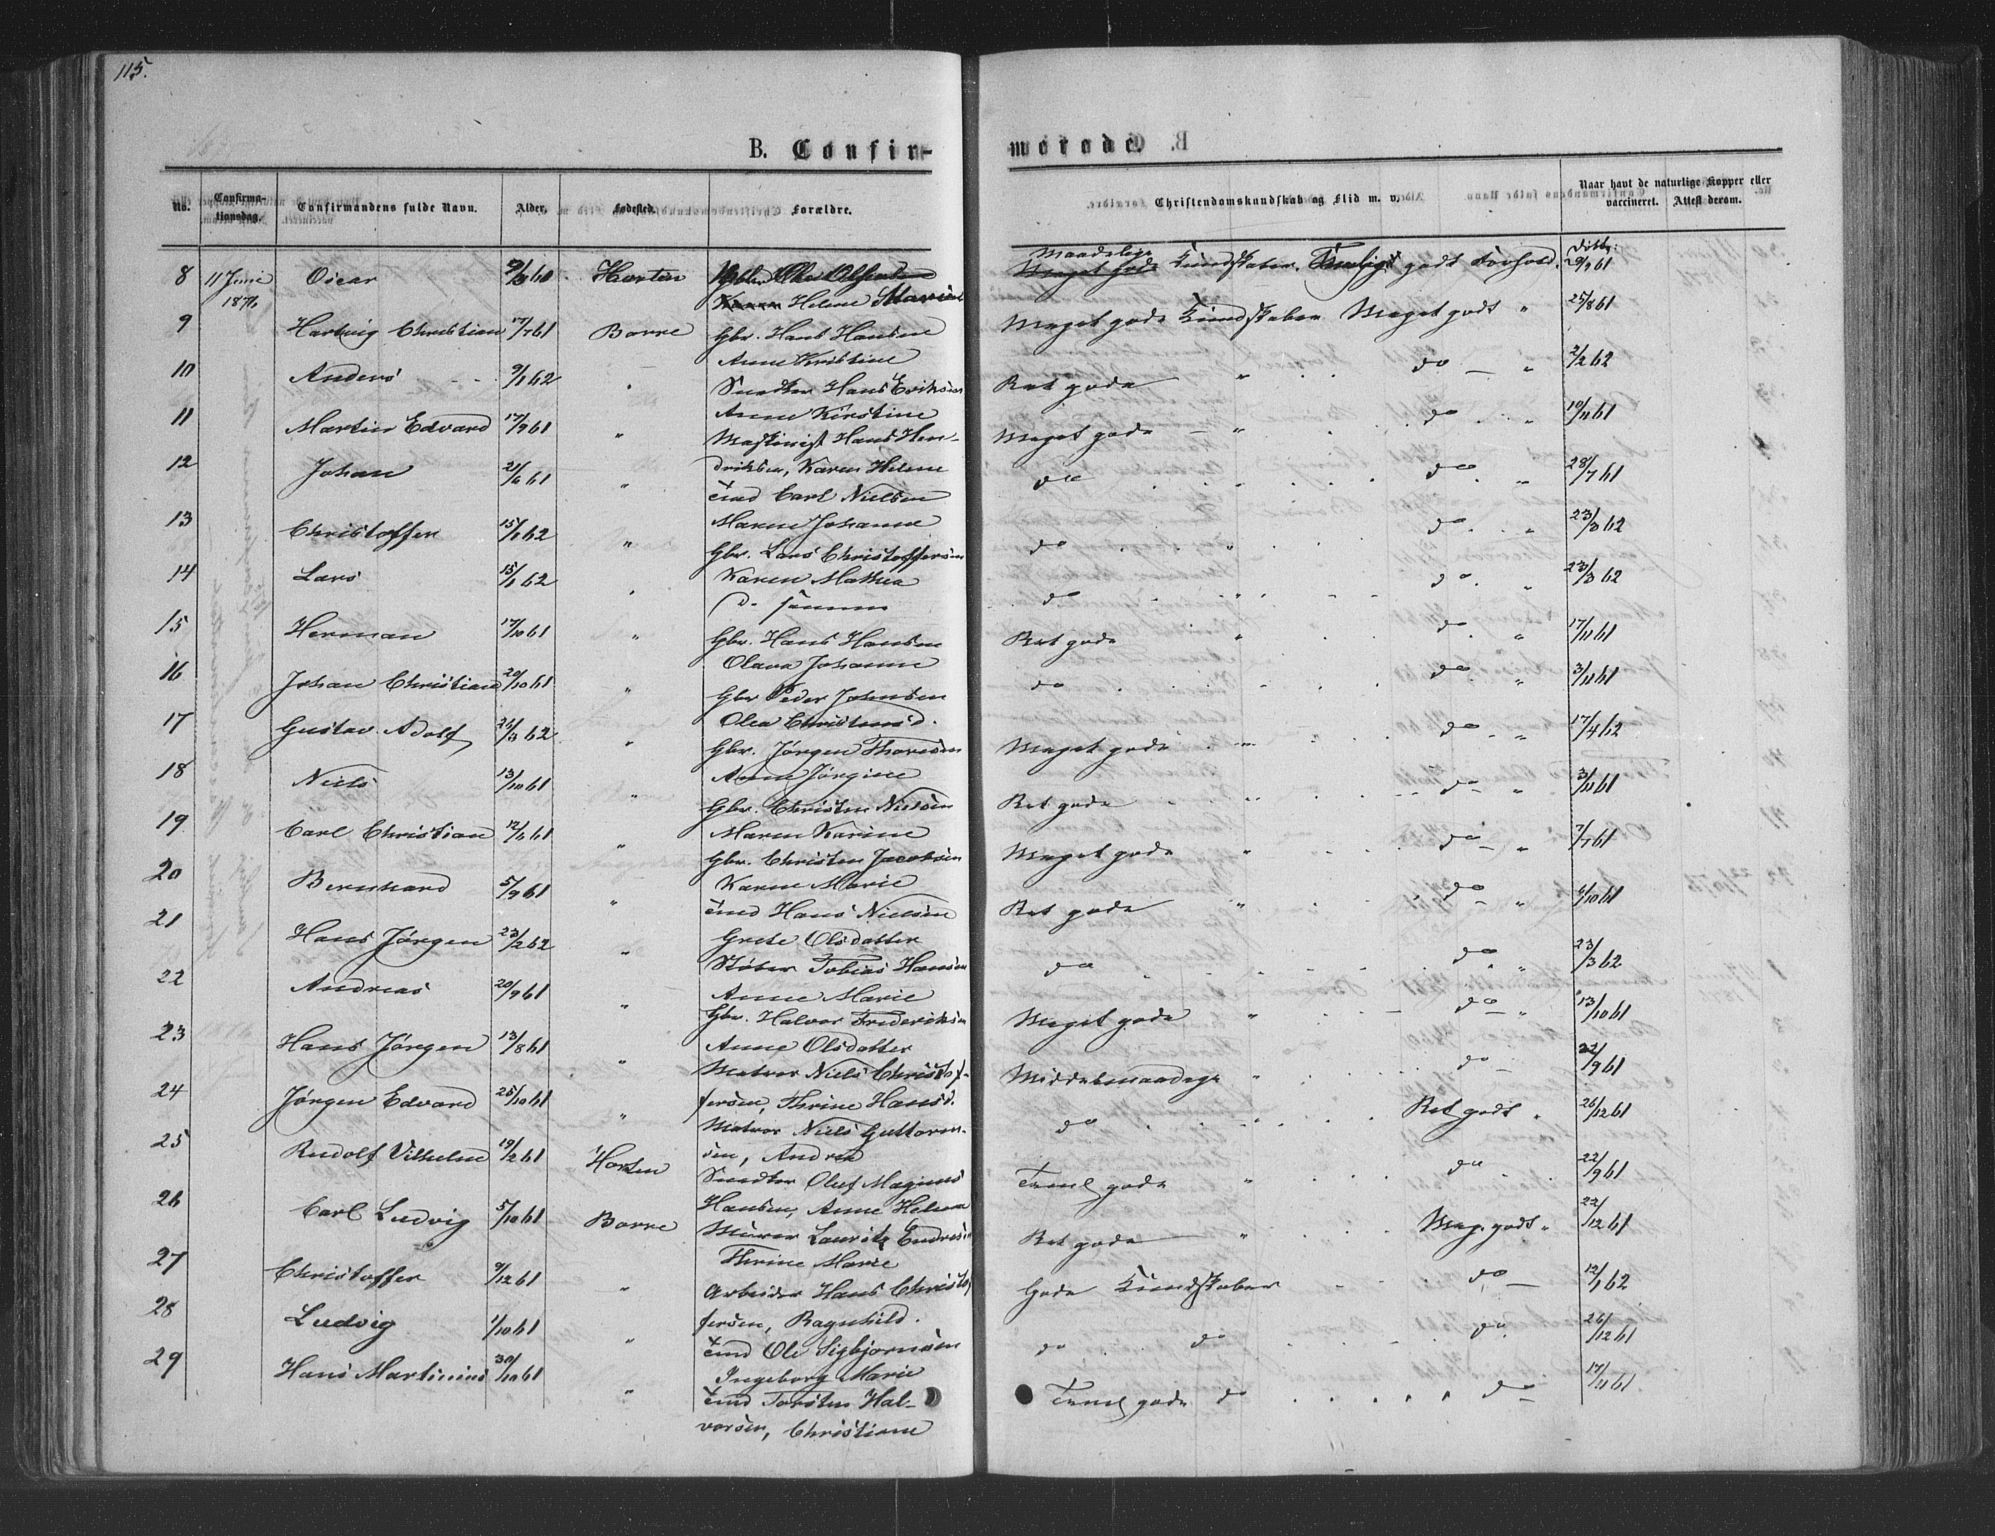 115.
B. Confir-
merede.
No. Confirma-tionsdag. Confirmandens fulde Navn. Alder. Fødested. Forældre. Christendomskundskab og Flid m. v. Naar havt de naturlige Kopper eller vaccineret. Attest derom.
8 11 Juni 1876 Oscar Horten Helene Kundskaber. godt Forhold.
9 Hartvig Christian 17/7 61 Borre Gbr. Hans Hansen Meget gode Kundskaber Meget godt " 25/8 61
Anne Kristine
10 Anders 9/1 62 " Smedker Hans Eriksen Ret gode " do " 2/2 62
Anne Kirstine
11 Martin Edvard 17/9 61 " Maskinist Hans Hen- Meget gode " do " 10/11 61
driksen, Karen Helene
12 Johan 21/6 61 " Inds Carl Nielsen do do " 28/7 61
Maren Johanne
13 Christoffer 15/1 62 " Gbr. Lars Christoffersen do " do " 23/3 62
Karen Mathea
14 Lars 15/1 62 " d. samme do " do " 23/3 62
15 Herman 17/10 61 " Gbr. Hans Hansen Ret gode " do " 17/11 61
Olava Johanne
16 Johan Christian 20/10 61 " Gbr Peder Johnsen do do " 3/11 61
Olea Christensd.
17 Gustav Adolf 21/3 62 " Gbr. Jørgen Thoresen Meget gode " do " 17/4 62
Anne Jørgine
18 Niels 13/10 61 " Gbr. Christen Nielsen Ret gode do " 3/11 61
Maren Karine
19 Carl Christian 12/6 61 " Gbr. Christen Jacobsen Meget gode " do " 7/7 61
Karen Marie
20 Bernhard 5/9 61 " Inds Hans Nielsen Ret gode " do " 6/10 61
Grete Olsdatter
21 Hans Jørgen 23/2 62 " Støber Tobias Hansen do do " 23/3 62
Anne Marie
22 Andreas 20/9 61 " Gbr. Halvor Frederiksen Meget gode " do " 13/10 61
Anne Olsdatter
23 Hans Jørgen 13/8 61 " Matros Niels Christof- Middelmaadige " do " 22/9 61
fersen, Thrine Hansd.
24 Jørgen Edvard 25/10 61 " Matros Niels Guttorm- do Ret godt " 26/12 61
sen, Andrea
25 Rudolf Vilhelm 19/2 61 Horten Smedker Oluf Magnus Taml gode " do 22/9 61
Hansen, Anne Helene
26 Carl Ludvig 5/10 61 Borre Murer Lauritz Endresen Ret gode " Meg. godt " 22/12 61
Thrine Marie
27 Christoffer 9/12 61 " Arbeider Hans Christof Gode Kundskaber do 12/1 62
fersen, Ragnhild.
28 Ludvig 1/10 61 " Inds Ole Sigbjørnsen do do do 26/12 61
Ingeborg Marie
29 Hans Martinius 30/10 61 " Inds Torsten Hal- Taml gode do do 17/11 61
vorsen, Christiane